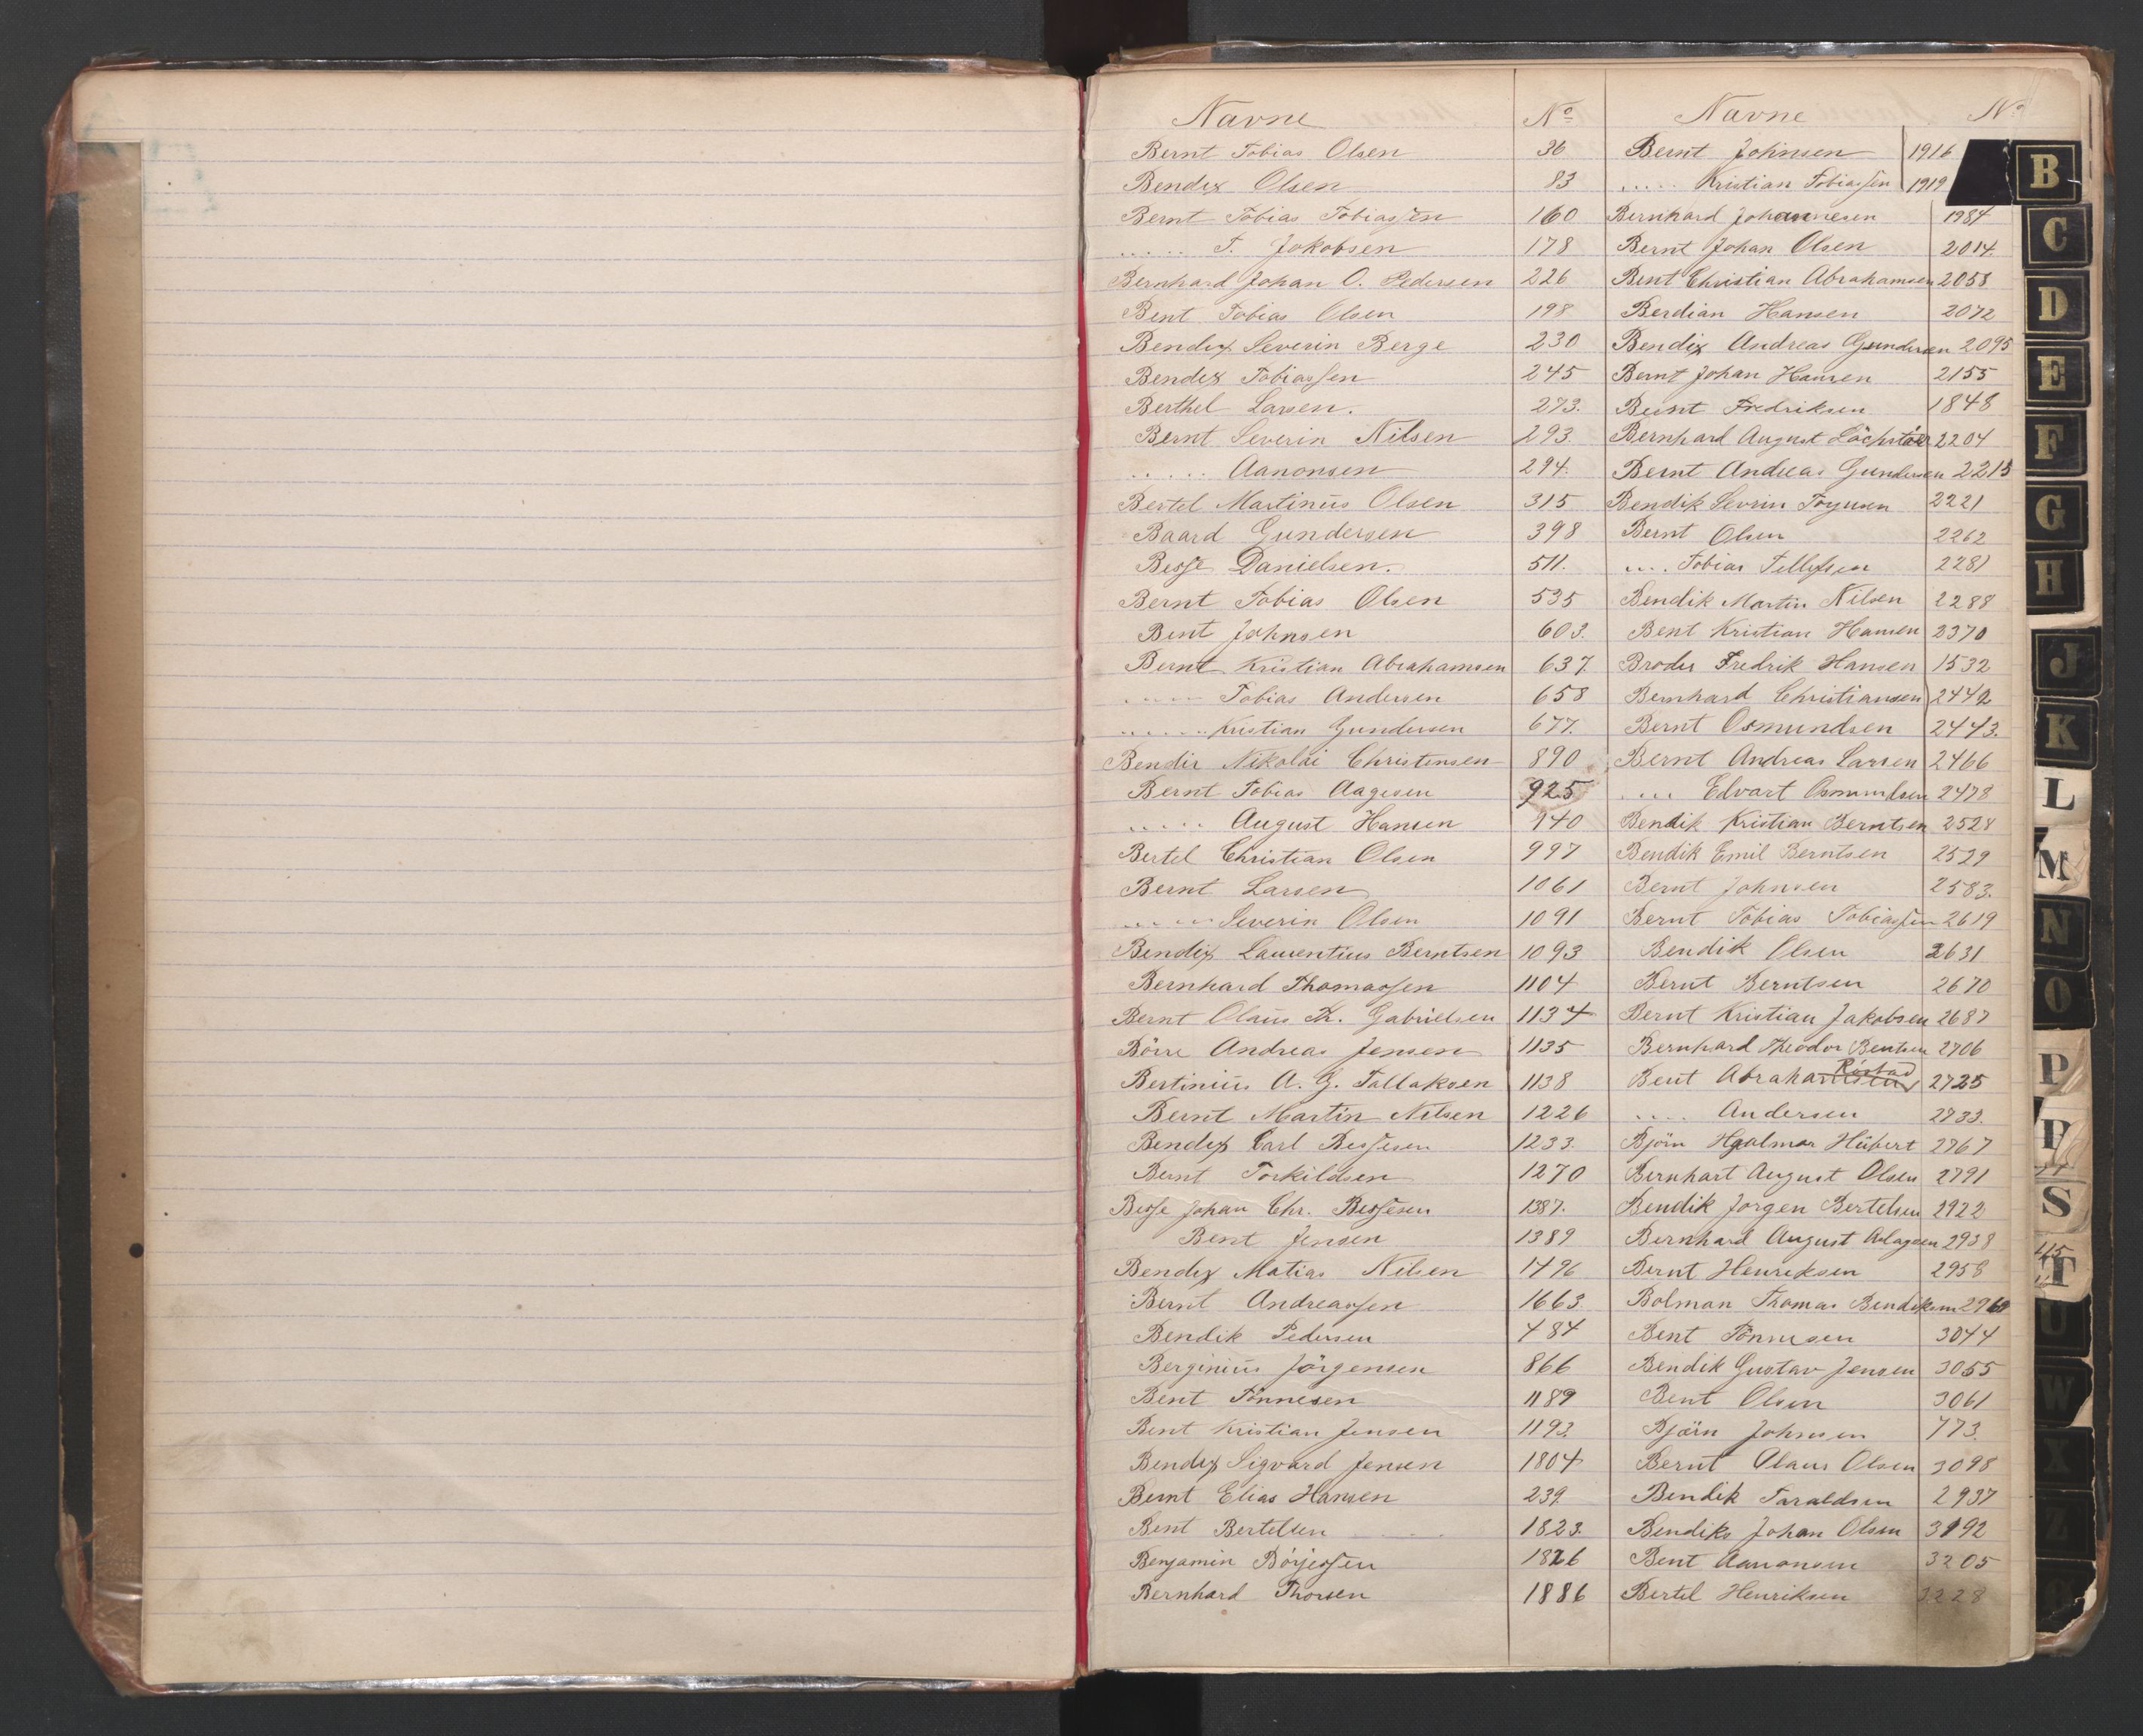 Navne No
Bernt Tobias Olsen 36
Bendix Olsen 83
Bernt Tobias Tobiassen 160
..... T. Jakobsen 178
Bernhard Johan O. Pedersen 226
Bent Tobias Olsen 198
Bendix Severin Berge 230
Bendix Tobiassen 245
Berthel Larsen. 273.
Bernt Severin Nilsen 293.
..... Aanonsen 294.
Bertel Martinus Olsen 315
Baard Gundersen 398
Besse Danielsen. 511.
Bernt Tobias Olsen 535
Bent Johnsen 603.
Bernt Kristian Abrahamsen 637.
..... Tobias Andersen 658
...... Kristian Gundersen 677.
Bendix Nikolai Christensen 890
Bernt Tobias Aagesen 925
..... August Hansen 940
Bertel Christian Olsen 997
Bernt Larsen 1061
..... Severin Olsen 1091
Bendix Laurentius Berntsen 1093
Bernhard Thomassen 1104
Bernt Olaus Th. Gabrielsen 1134
Börre Andreas Jensen 1135
Bertinius A. G. Tallaksen 1138
Bernt Martin Nilsen 1226
Bendix Carl Bessesen 1233.
Bernt Torkildsen 1270
Besse Johan Chr. Bessesen 1387.
Bent Jensen 1389
Bendix Matias Nilsen 1496
Bernt Andreassen 1663.
Bendik Pedersen 484
Berginius Jörgensen 866
Bent Tönnesen 1189
Bent Kristian Jensen 1193.
Bendix Sigvard Jensen 1804
Bernt Elias Hansen 239.
Bent Bertelsen 1823.
Benjamin Börjessen 1826
Bernhard Thorsen 1886
Navne No
Bernt Johnsen 1916
..... Kristian Tobiassen 1919
Bernhard Johannesen 1984
Bernt Johan Olsen 2014.
Bent Christian Abrahamsen 2058
Berdian Hansen 2072
Bendix Andreas Gundersen 2095
Bernt Johan Hansen 2155
Bernt Fredriksen 1848
Bernhard August 2204
Bernt Andreas Gundersen 2215
Bendik Sevrin 2221
Bernt Olsen 2262
.... Tobias Tellefsen 2281
Bendik Martin Nilsen 2288
Bent Kristian Hansen 2370
Broder Fredrik Hansen 1532
Bernhard Christiansen 2442
Bernt Osmundsen 2443.
Bernt Andreas Larsen 2466
.... Edvart Osmundsen 2478
Bendik Kristian Berntsen 2528
Bendik Emil Berntsen 2529
Bernt Johnsen 2583.
Bernt Tobias Tobiassen 2619
Bendik Olsen 2631
Bernt Berntsen 2670
Bernt Kristian Jakobsen 2687
Bernhard Theodor Bentsen 2706
Bent Abrahamsen 2725
.... Andersen 2733.
Björn Hjalmar Hübert 2767
Bernhart August Olsen 2791
Bendik Jörgen Bertelsen 2922
Bernhard August Aslagsen 2938
Bernt Henriksen 2958
Bolman Thomas Bendiksen
Bent Tönnesen 3044
Bendik Gustav Jensen 3055
Bent Olsen 3061
Björn Johnsen 773.
Bernt Olaus Olsen 3098
Bendik Taraldsen 2937
Bendiks Johan Olsen 3192
Bent Aanonsen 3205
Bertel Henriksen 3228
B
C
D
E
F
G
H
J
K
L
M
N
O
P
S
T
U
W
X
Z